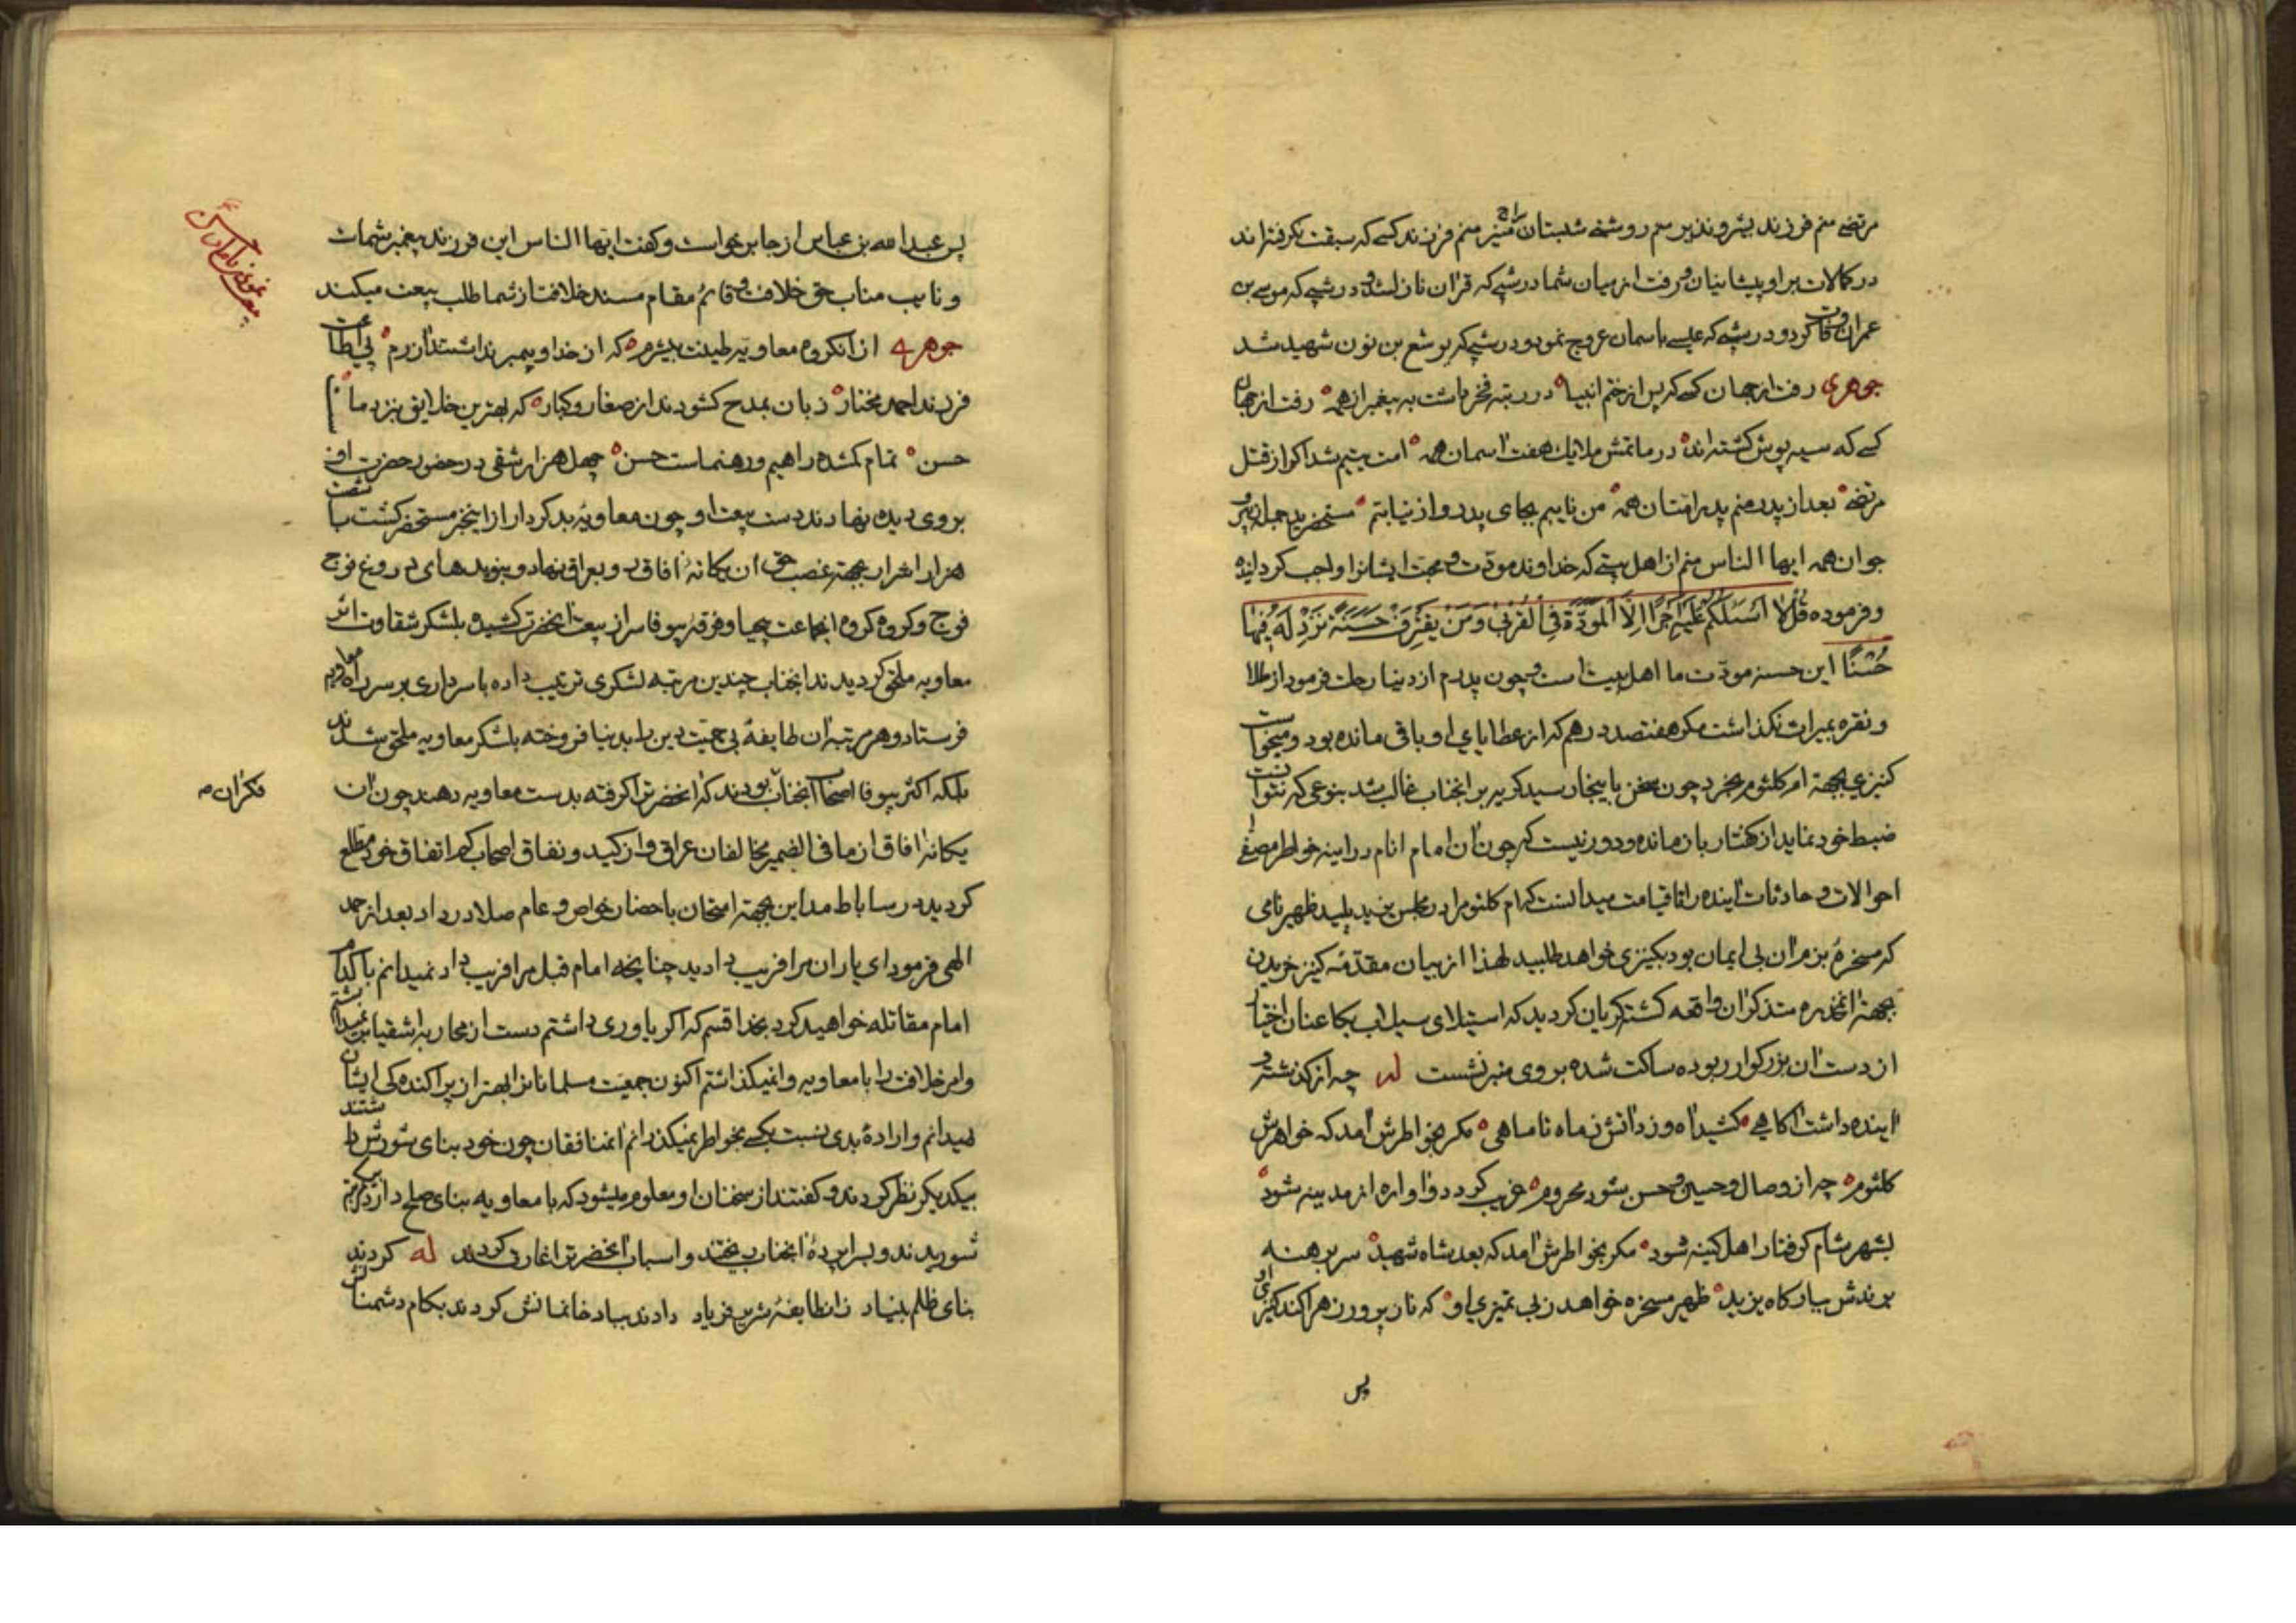 مرتضی منم فرزند بشیر و نذیر منم روشنی شبستان سراج منیر منم فرزند کسی که سبقت نکرفته‌اند
در کمالات بر او پیشانیان و رفت از میان شما در شبی که قران نازل شد و در شبی که موسی بن
عمران وفات کرد و در شبی که عیسی باسمان عروج نمود و در شبی که یوشع بن نون شهید شد
جوهری رفت از جهان کسی که پس از ختم انبیا در رتبه فخر داشت به پیغمبران همه رفت از جهان
کسی که سیه پوش کشته‌اند در ماتمش ملایك هفت اسمان همه امت یتیم شد اکر از قتل
مرتضی بعد از پدر منم پدر امتان همه من نایبم بجای پدر دو از نیابتم مستحضرید جمله ز پیر و
جوان همه ایها الناس منم از اهل بیتی که خداوند مودّت و محبت ایشانرا واجب کردانیده
و فرموده قُل لا اَسئَلُکُم عَلَیهِ اَجرًا اِلَّا المَوَدَّةَ فِی القُربی وَمَن یَقتَرِف حَسَنَةً نَزِد لَهُ فیها
حُسنًا این حسنه مودّت ما اهل بیت است و چون پدرم از دنیا رحلت فرمود از طلا
و نقره بمیراث نکذاشت مکر هفتصد درهم که از عطایای او باقی مانده بود و میخواست
کنیزی بجهة ام کلثوم بخرد چون سخن باینجا رسید کریه بر انجناب غالب شد بنوعی که نتوانست
ضبط خود نماید از کفتار باز ماند و دور نیست که چون ان امام انام در اینه خواطر مصفی
احوالات و حادثات اینده را تا قیامت میدانست که ام کلثوم را در مجلس یزید پلید ظهیر نامی
که مسخرهٔ بزم ان بی ایمان بود بکنیزی خواهد طلبید لهذا از بیان مقدمه کنیز خریدن
بجهة انمخدره متذکر ان واقعه کشته کریان کردید که استیلای سیلاب بکا عنان اختیار
از دست ان بزرکوار ربوده ساکت شده بروی منبر نشست له چه از کذشته و
اینده داشت اکاهی کشید اه و زد اتش ز ماه تا ماهی مکر بخواطرش امد که خواهرش
کلثوم چه از وصال حسین و حسن شود محروم غریب کردد و اواره از مدینه شود
بشهر شام کرفتار اهل کینه شود مکر بخواطرش امد که بعد شاه شهید سر برهنه
برندش ببارکاه یزید ظهیر مسخره خواهد ز بی تمیزی او که نازپرور زهرا کند کنیزی او
پس
پس عبدالله بن عباس از جا برخواست و کفت ایها الناس این فرزند پیغمبر شماست
و نایب مناب حق خلافت و قائم مقام مسند خلافت از شما طلب بیعت میکند
جوهری از انکروه معاویه طینت بیشرم که از خدا و پیمبر نداشتند ازرم پی اطاعت
فرزند احمد مختار زبان بمدح کشودند از صغار و کبار که بهترین خلایق بنزد ما
حسن تمام کمشده راهیم و رهنماست حسن چهل هزار شقی در حضور حضرت او
بروی دیده نهادند دست بیعت او چون معاویه بد کردار از اینخبر مستحضر کشت با شصت
هزار اشرار بجهة غصب حق ان یکانهٔ افاق رو بعراق نهاد و بنویدهای دروغ فوج
فوج و کروه کروه انجماعت بیحیا و فرقه بیوفا سر از بیعت انحضرت کشیده بلشکر شقاوت اثر
معاویه ملحق کردیدند انجناب چندین مرتبه لشکری ترتیب داده با سرداری بر سر راه معاویه
فرستاد و هر مرتبه ان طایفهٔ بی حمیّت دین را بدنیا فروخته بلشکر معاویه ملحق شدند
بلکه اکثر بیوفا اصحاب انجناب بودند که انحضرترا کرفته بدست معاویه دهند چون ان
یکانه افاق از ما فی الضمیر مخالفان عراق و از کید و نفاق اصحاب کم اتفاق خود مطلع
کردید در ساباط مداین بجهة امتحان باحضار خواص و عام صلا در داد بعد از حمد
الهی فرمود ای یاران مرا فریب دادید چنانچه امام قبل مرا فریب داد نمیدانم با کدام
امام مقاتله خواهید کرد بخدا قسم که اکر یاوری داشتم دست از محاربه اشقیا بر نمیداشتم
و امر خلافت را با معاویه وانمیکذاشتم اکنون جمعیّت مسلمانانرا بهتر از پراکنده کی ایشان
میدانم و ارادهٔ بدی نسبت بکسی بخواطر نمیکذرانم انمنافقان چون خود بنای شورش داشتند
بیکدیکر نظر کردند و کفتند از سخنان او معلوم میشود که با معاویه بنای صلح دارد
شوریدند و بسراپردهٔ انجناب ریختند و اسباب انحضرترا غارت کردند له کردند
بنای ظلم بنیاد زانطایفهٔ شریر فریاد دادند بباد خانمانش کردند بکام دشمنانش
فکران